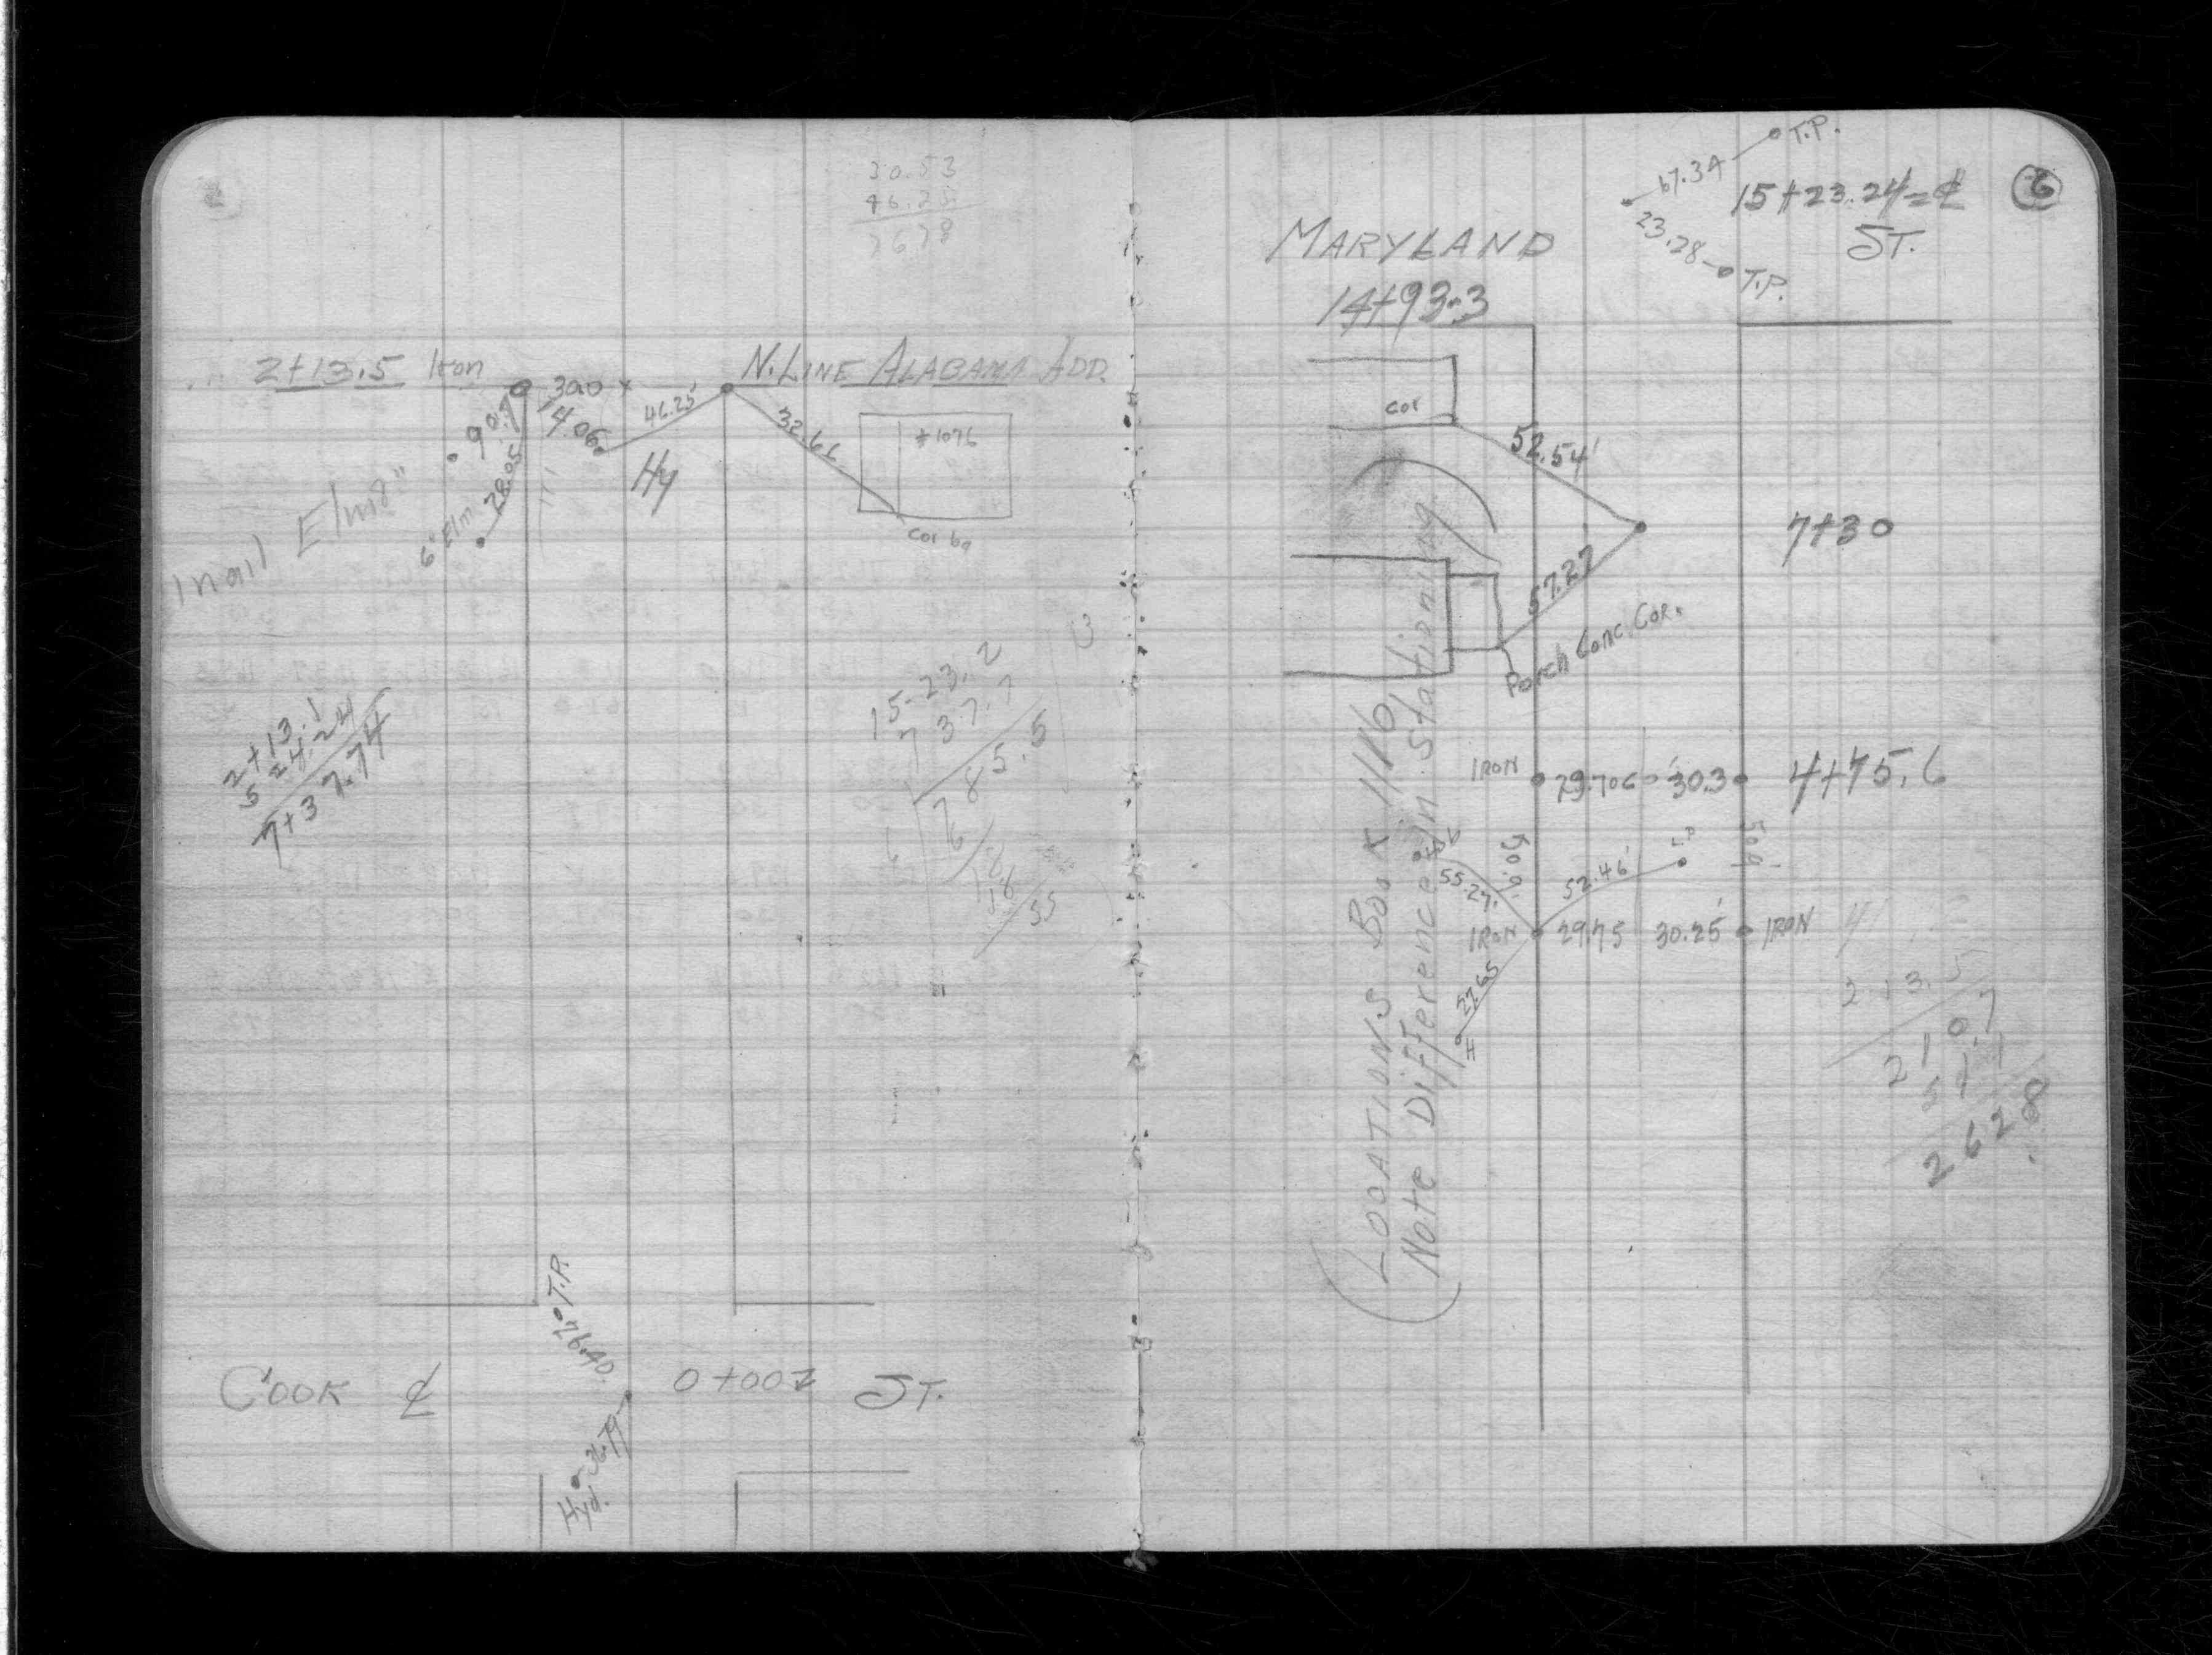 30.53
46.25
7678
2+13.5 Iron
30.0
N. LINE ALABAMA ADD.
90.7
14.06
46.25'
32.66
#1076
Hy
28.05
6" Elm
cor bg
nail Elm 8"
2+13.1
5 24.24
7+37.74
15-23.2
7 37.7
7 85.5
T.P.
26.40
COOK ℄
0+00 ST.
36.79
Hyd.
6
T.P.
67.34
15+23.24=℄
23.28
T.P.
ST.
MARYLAND
14+93.3
cor
52.54'
7+30
57.27'
Porch Conc. Cor.
IRON
29.70
30.3
4+75.6
55.27
50.9
52.46'
50.9
IRON
29.75
30.25'
IRON
27.65
H
LOCATIONS BOOK 1116
Note Difference In Stationing
213.5
210.7
52.1
262.8